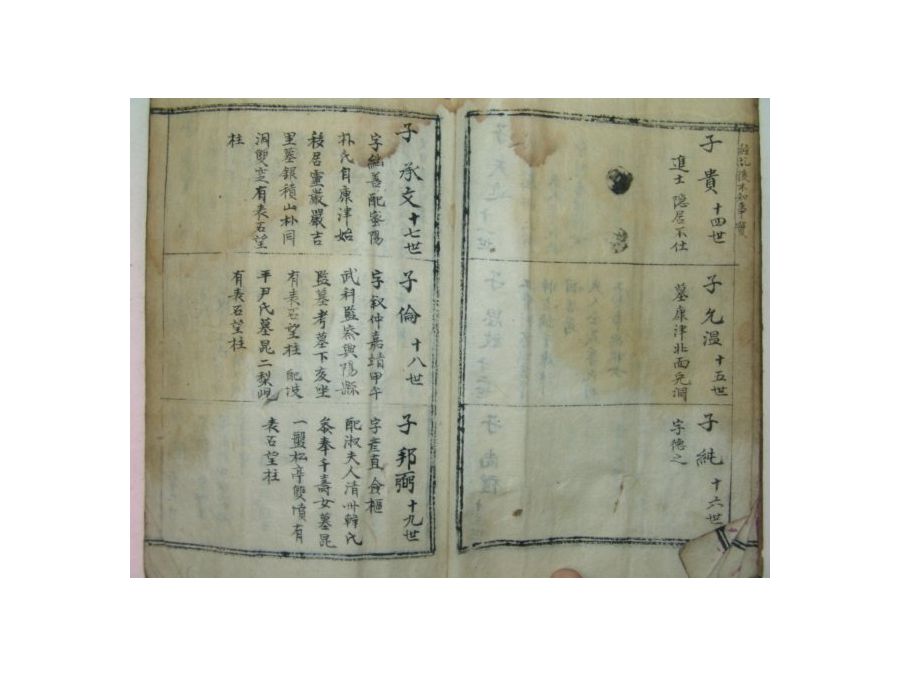 子 貴 十四世
進士 隠居不仕
子 允温 十五世
墓康津北面免洞
子 純 十六世
字德之
子 承文 十七世
字繼善配宻陽
朴氏自康津始
移居靈巖嚴吉
里墓銀積山朴同
洞雙空有表石望
柱
子 倫 十八世
字叙仲嘉靖甲午
武科監察興陽縣
監墓考墓下亥坐
有表石望柱 配坡
平尹氏墓昆二梨峴
有表石望柱
子 邦弼 十九世
字產直 僉樞
配淑夫人清州韓氏
叅奉千壽女墓昆
一盤松亭雙墳有
表石望柱